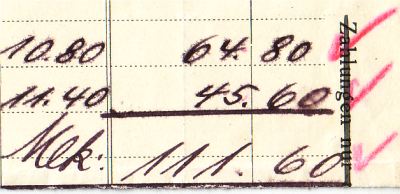 10.80 64.80
11.40 45.60
Mk: 111.60
Zahlungen nur